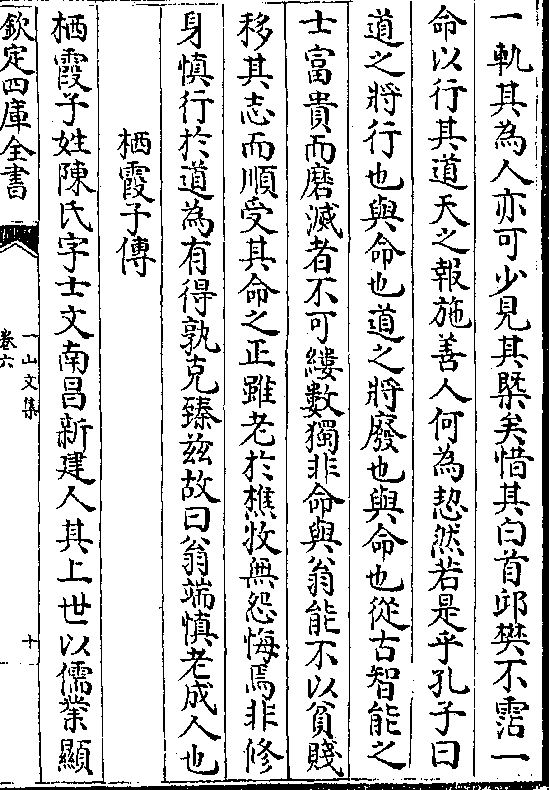 一軌其為人亦可少見其槩矣惜其白首邱樊不霑一
命以行其道天之報施善人何為恝然若是乎孔子曰
道之將行也與命也道之將廢也與命也從古智能之
士富貴而磨滅者不可縷數獨非命與翁能不以貧賤
移其志而順受其命之正雖老於樵牧無怨悔焉非修
身慎行於道為有得孰克臻兹故曰翁端慎老成人也
栖霞子傳
栖霞子姓陳氏字士文南昌新建人其上世以儒業顯
欽定四庫全書
一山文集
卷六
十